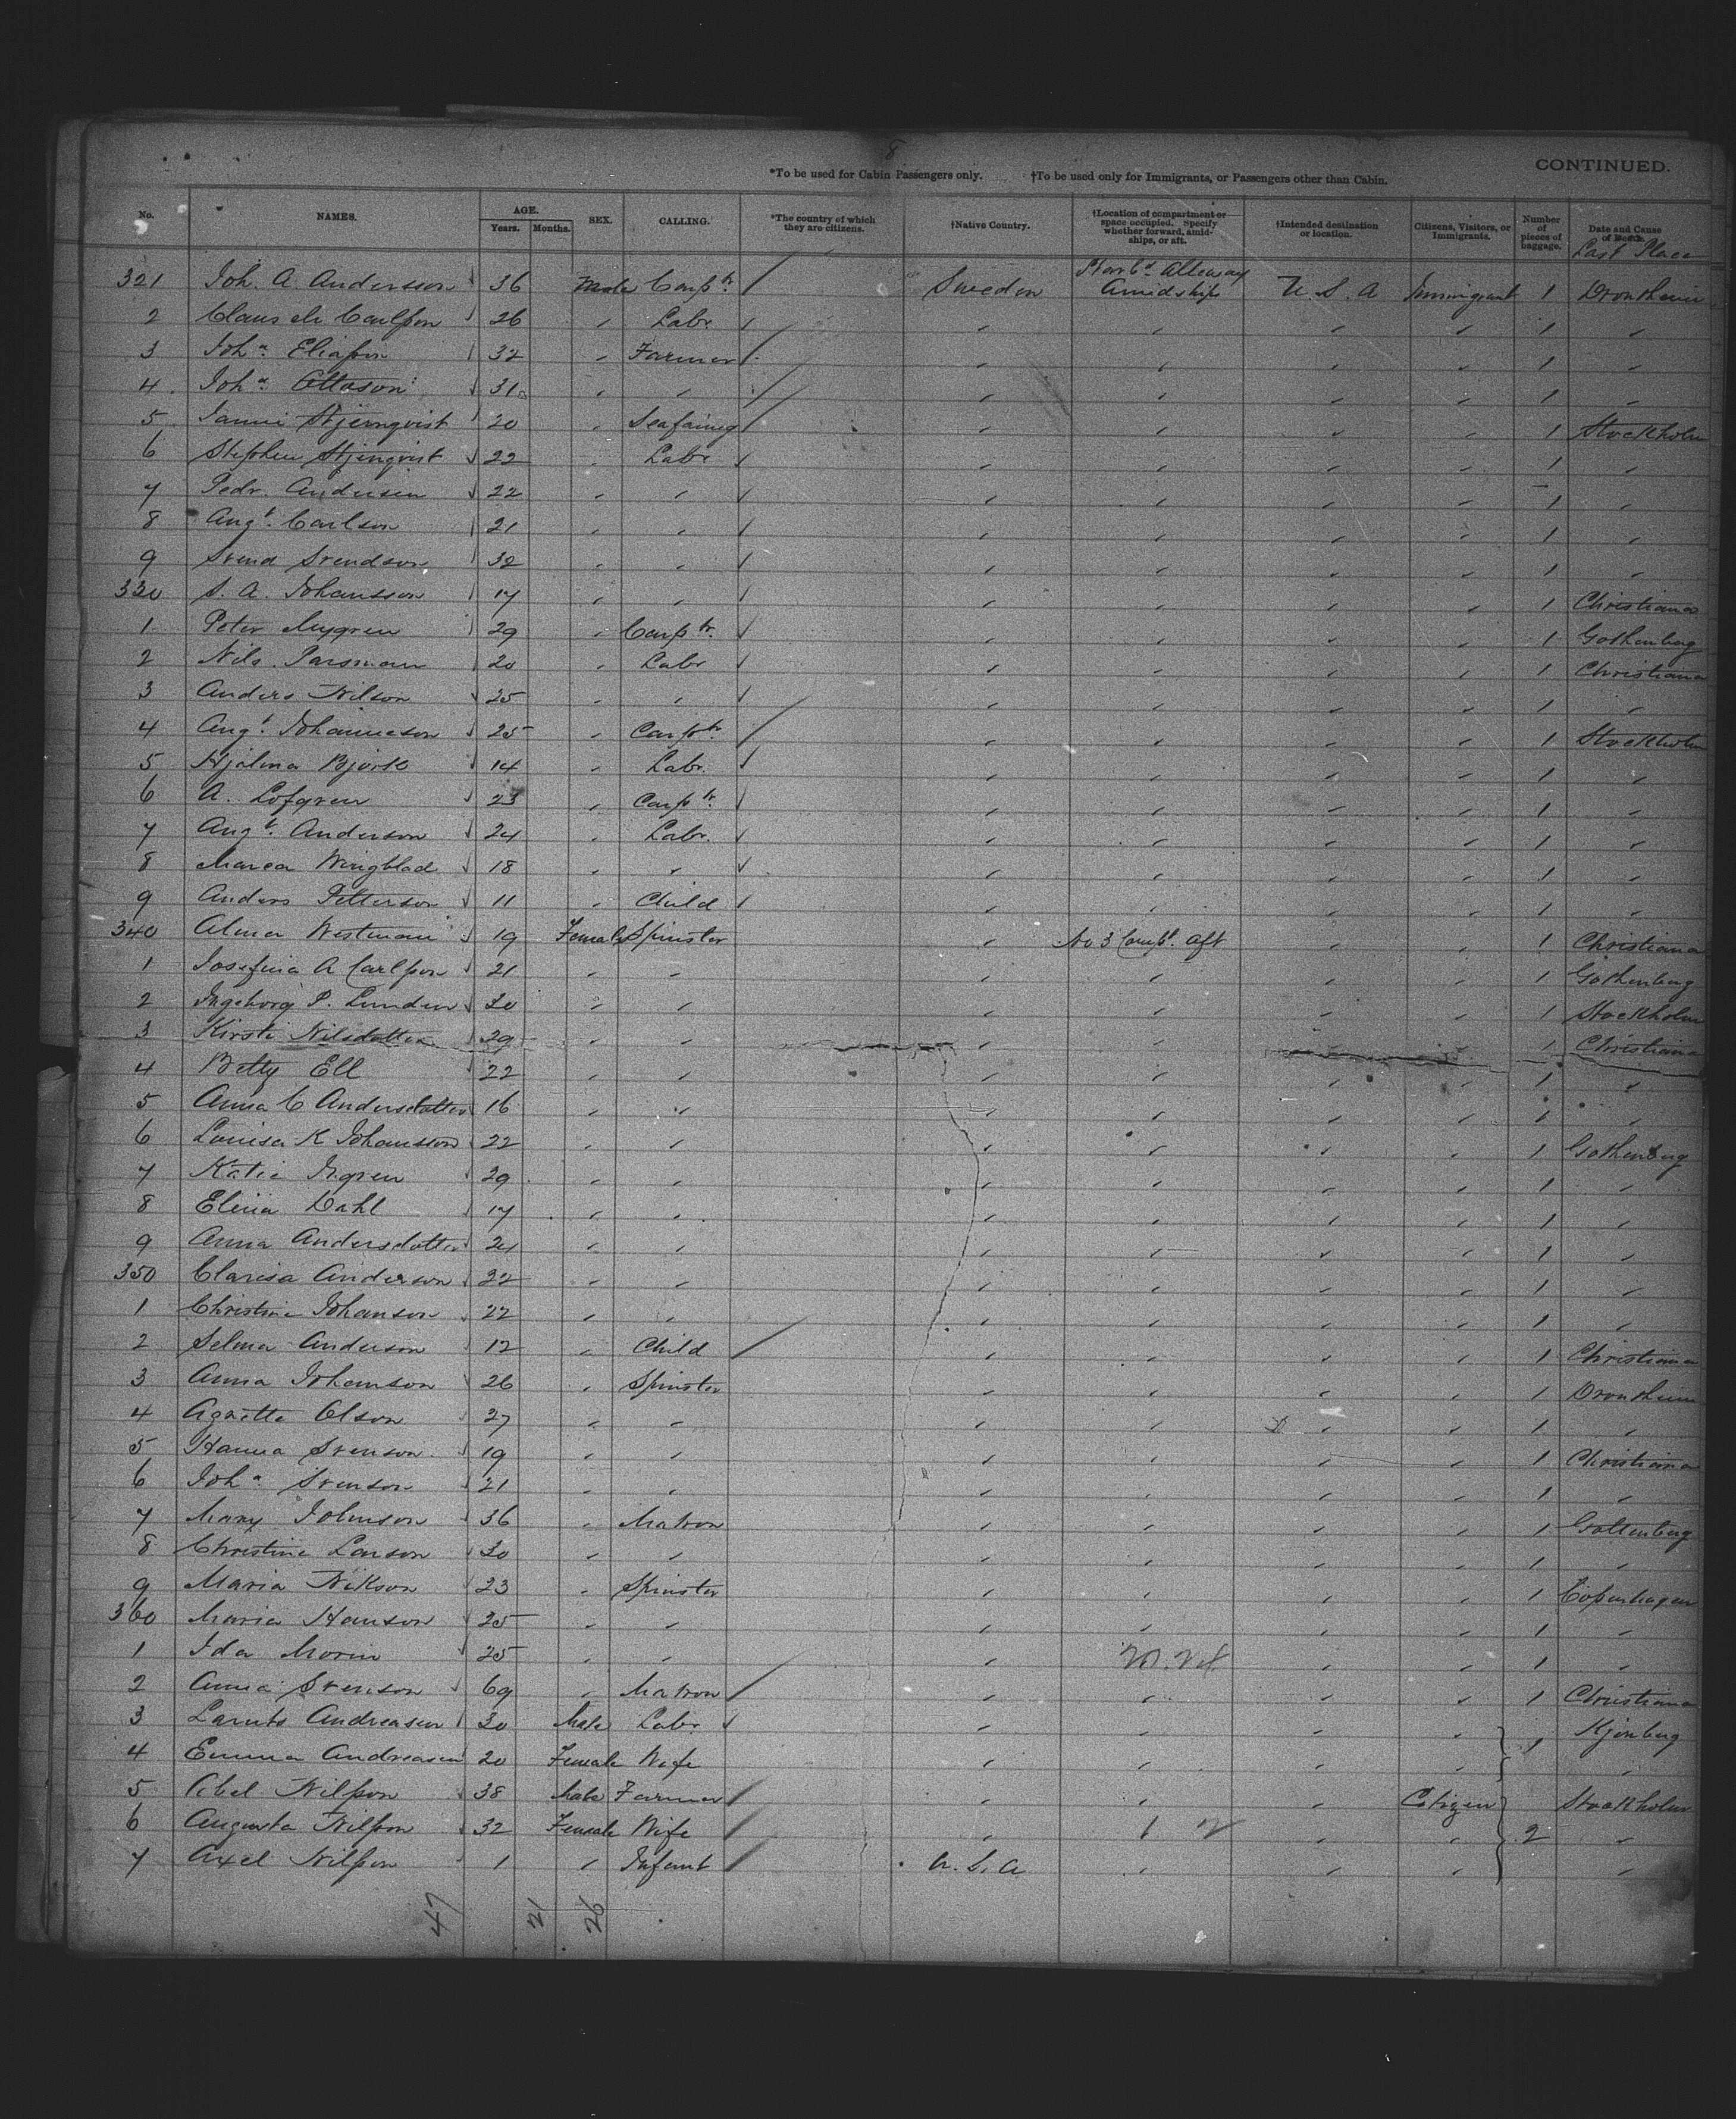 8
*To be used for Cabin Passengers only. †To be used only for Immigrants, or Passengers other than Cabin. CONTINUED.
No. NAMES. AGE. Years. Months. SEX. CALLING. *The country of which they are citizens. †Native Country. †Location of compartment or space occupied. Specify whether forward, amidships, or aft. †Intended destination or location. Citizens, Visitors, or Immigrants. Number of pieces of baggage. Date and Cause of Death. Last Place
321 Joh. A. Andersson 36 Male Carptr. Sweden Starbd Alleway Amidships U. S. A Immigrant 1 Drontheim
2 Claus Carlsson 26 " Labr " " " " 1 "
3 Joha. Eliasson 32 " Farmer " " " " 1 "
4 Joha. Ottoson 31 " " " " " " 1 "
5 Stjernqvist 20 " Seafaring " " " " 1 Stockholm
6 Stephen Stjernqvist 22 " Labr " " " " 1 "
7 Pedr. Andersen 22 " " " " " " 1 "
8 Augt. Carlson 21 " " " " " " 1 "
9 Svend Svendson 32 " " " " " " 1 "
330 S. A. Johansson 17 " " " " " " 1 Christiana
1 Peter Nygren 29 " Carptr. " " " " 1 Gothenberg
2 Nils. Parsman 20 " Labr " " " " 1 Christiana
3 Anders Nilson 25 " " " " " " 1 "
4 Augt. Johanneson 25 " Carptr. " " " " 1 Stockholm
5 Hjalma Bjork 14 " Labr. " " " " 1 "
6 A. Lofgren 23 " Carptr. " " " " 1 "
7 Augt. Anderson 24 " Labr. " " " " 1 "
8 Wingblad 18 " " " " " " 1 "
9 Anders Petterson 11 " Child " " " " 1 "
340 Alma Westman 19 Female Spinster " No 3 Compt. Aft " " 1 Christiana
1 Josefina A Carlsson 21 " " " " " " 1 Gothenberg
2 Ingeborg P. Lunden 30 " " " " " " 1 Stockholm
3 Kirsti Nilsdotter 29 " " " " " " 1 Christiana
4 Betty Ell 22 " " " " " " 1 "
5 Anna C Andersdotter 16 " " " " " " 1 "
6 Louisa K Johansson 22 " " " " " " 1 Gothenberg
7 Katie 29 " " " " " " 1 "
8 Elina Dahl 17 " " " " " " 1 "
9 Anna Andersdotter 24 " " " " " " 1 "
350 Clarisa Anderson 22 " " " " " " 1 "
1 Christine Johanson 22 " " " " " " 1 "
2 Selma Anderson 12 " Child " " " " 1 Christiana
3 Anna Johanson 26 " Spinster " " " " 1 Drontheim
4 Agnette Olson 27 " " " " " " 1 "
5 Hanna Svenson 19 " " " " " " 1 Christiana
6 Joha Svenson 21 " " " " " " 1 "
7 Mary Johnson 36 " Matron " " " " 1 Gottenberg
8 Christine Larson 30 " " " " " " 1 "
9 Maria Nilson 23 " Spinster " " " " 1 Copenhagen
360 Maria Hanson 25 " " " " " " 1 "
1 Ida Morin 25 " " " " " 1 "
2 Anna Svenson 69 " Matron " " " " 1 Christiana
3 Andreasen 30 Male Labr " " " " 1
4 Emma Andreasen 20 Female Wife " " " " "
5 Abel Nilsson 38 Male Farmer " " " Citizen Stockholm
6 Augusta Nilsson 32 Female Wife " " " 2 "
7 Axel Nilsson 1 " Infant U. S. A " " " "
47 21 26